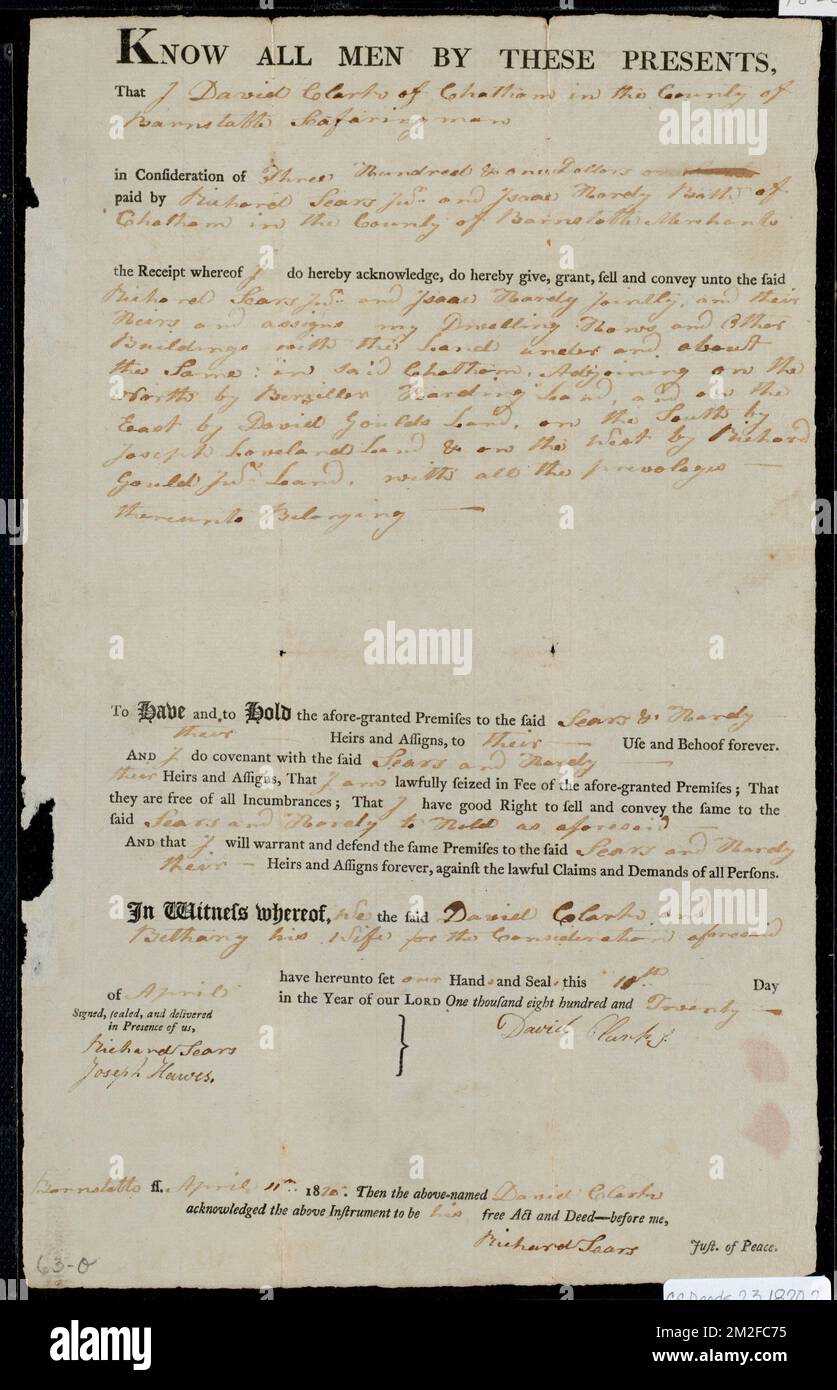 KNOW ALL MEN BY THESE PRESENTS,
That I David Clark of Chatham in the County of
Barnstable Seafaringman
in Conſideration of Three Hundred & one Dollars
paid by Richard Sears Junr and Isaac Hardy Both of
Chatham in the County of Barnstable Merchants
the Receipt whereof I do hereby acknowledge, do hereby give, grant, ſell and convey unto the ſaid
Richard Sears Junr and Isaac Hardy Jointly, and their
Heirs and assigns my Dwelling Hows and Other
Buildings with the Land under and about
the Same: in said Chatham, Adjoining on the
North by Harding Land, and on the
East by David Goulds Land, on the South by
Joseph Loveland Land & on the West by Richard
Gould Junr Land, with all the prevoleges
thereunto Belonging
To Have and to Hold the afore-granted Premiſes to the ſaid Sears & Hardy
their Heirs and Aſſigns, to their Uſe and Behoof forever.
AND I do covenant with the ſaid Sears and Hardy
their Heirs and Aſſigns, That I am lawfully ſeized in Fee of the afore-granted Premiſes; That
they are free of all Incumbrances; That I have good Right to ſell and convey the ſame to the
ſaid Sears and Hardy to Hold as aforesaid
AND that I will warrant and defend the ſame Premiſes to the ſaid Sears and Hardy
their Heirs and Aſſigns forever, againſt the lawful Claims and Demands of all Perſons.
In Witneſs whereof, We the ſaid David Clark and
Bethany his Wife for the Consideration aforesaid
have hereunto ſet our Hands and Seals this 11th Day
of April in the Year of our LORD One thouſand eight hundred and Twenty
Signed, ſealed, and delivered
in Preſence of us,
David Clark
Richard Sears
Joseph Hawes.
Barnstable ſſ. April 11th 1820. Then the above-named David Clark
acknowledged the above Inſtrument to be his free Act and Deed—before me,
Richard Sears Juſt. of Peace.
63-0
alamy
Image ID: 2M2FC75
www.alamy.com